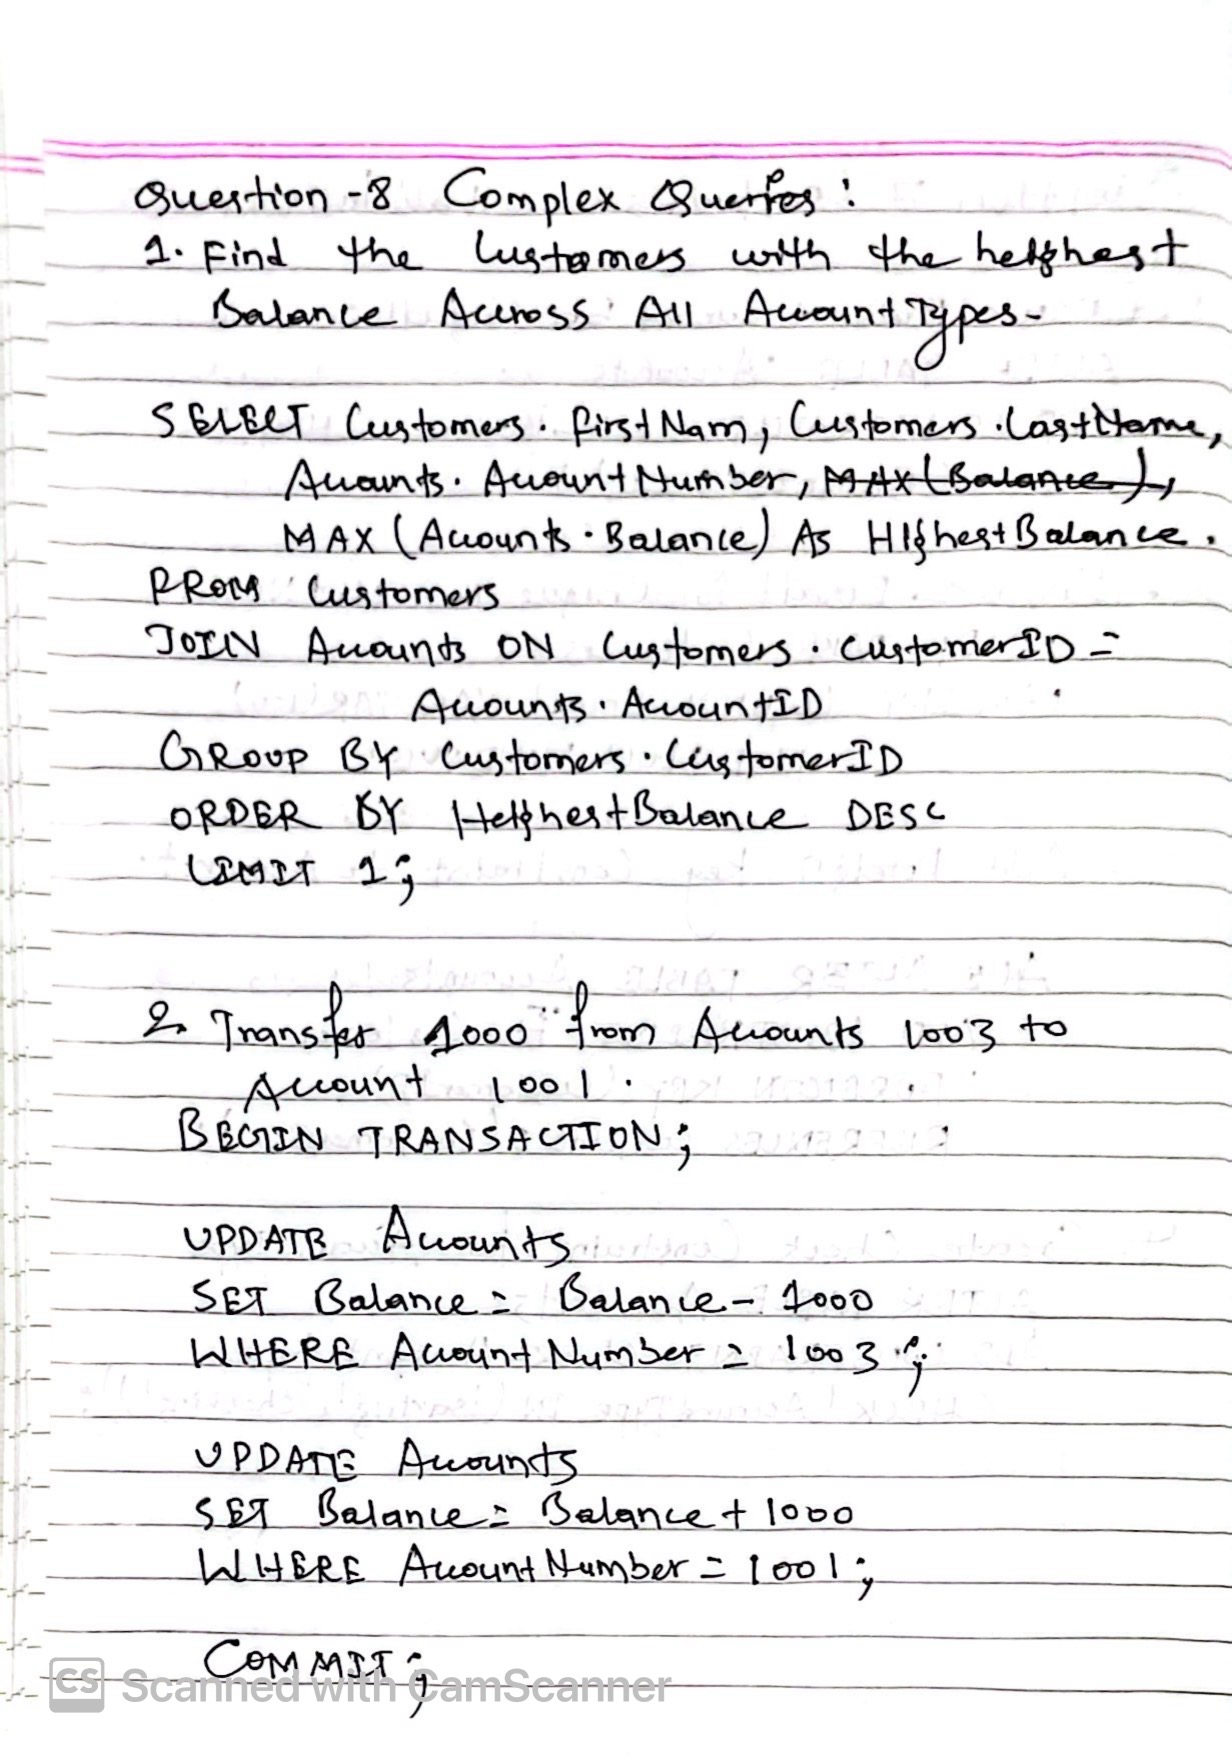 Question -8 Complex Queries :
1. Find the Customers with the heighest
Balance Accross All Account Types-
SELECT Customers . FirstNam, Customers . LastName,
Accounts . AccountNumber, MAX (Balance),
MAX (Accounts . Balance) As HIghestBalance .
FROM Customers
JOIN Accounts ON Customers . CustomerID =
Accounts . AccountID
GROUP BY Customers . CustomerID
ORDER BY HeighestBalance DESC
LIMIT 1 ;
2. Transfer 1000 from Accounts 1003 to
Account 1001 .
BEGIN TRANSACTION ;
UPDATE Accounts
SET Balance = Balance - 1000
WHERE AccountNumber = 1003 ;
UPDATE Accounts
SET Balance = Balance + 1000
WHERE AccountNumber = 1001 ;
COMMIT ;
CS Scanned with CamScanner